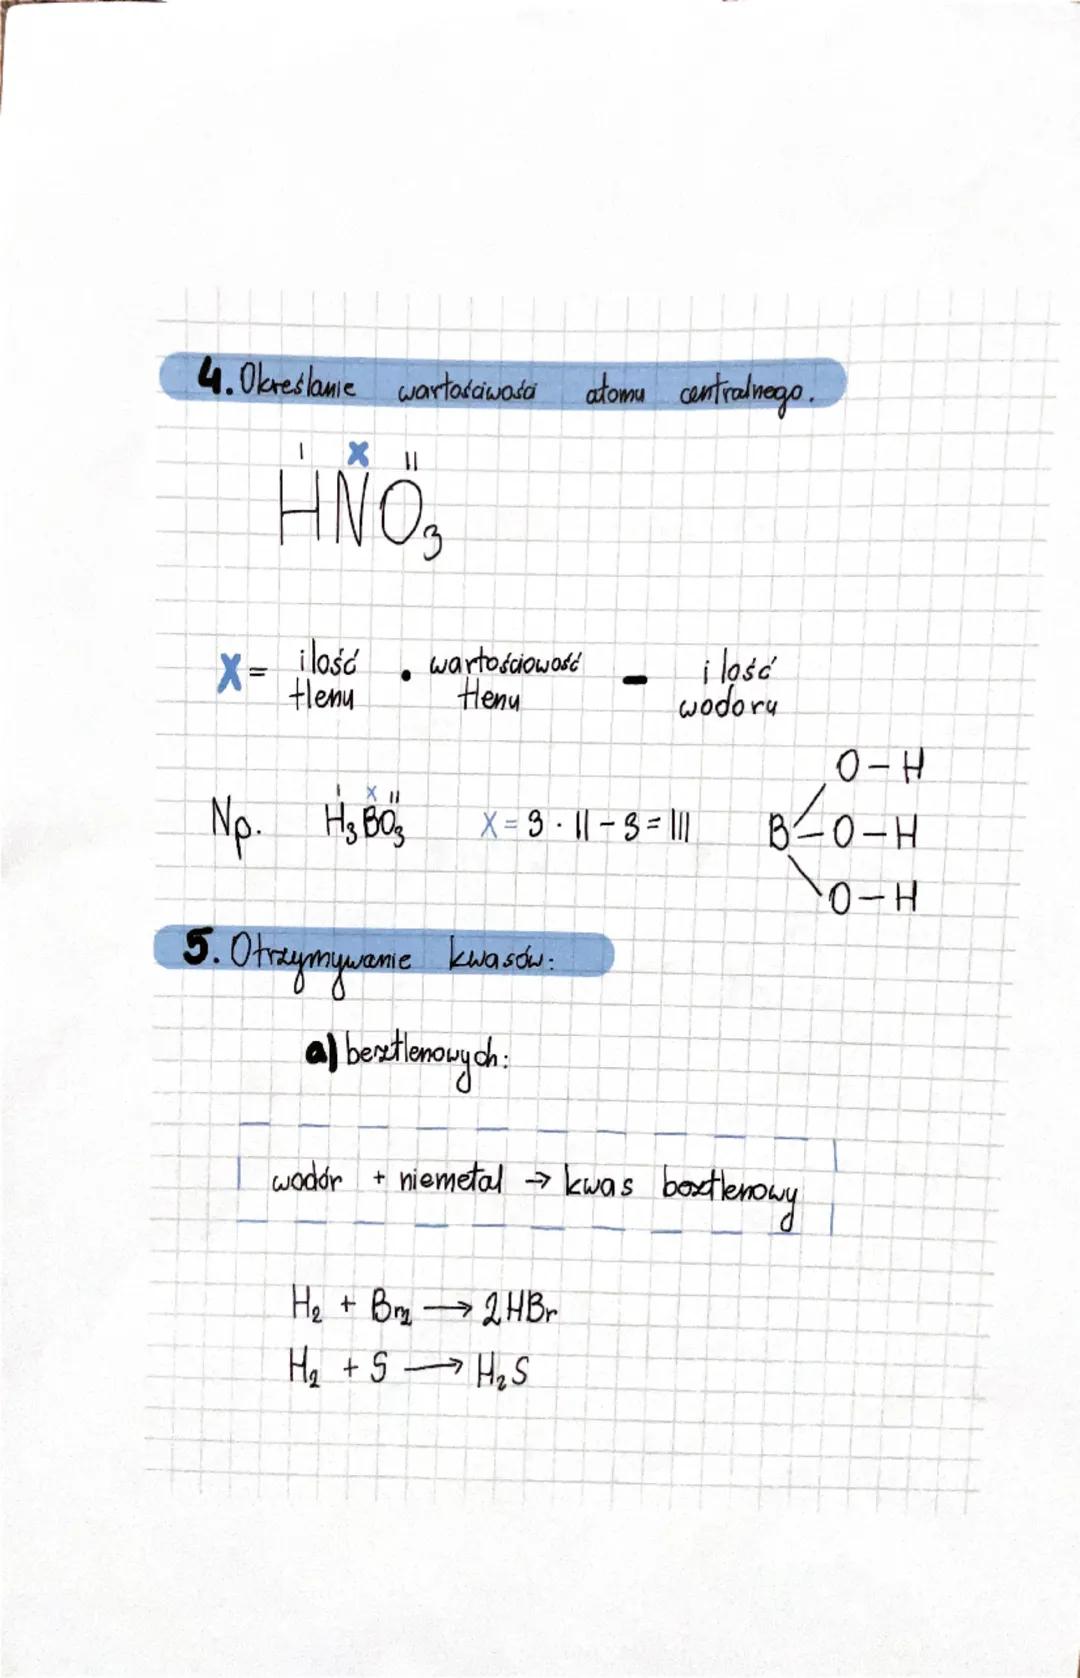 4. Określanie wartościwości atomu centralnego.
I X II
HNO₃
X = ilość tlenu • wartościowość tlenu - ilość wodoru
I X II
Np. H₃BO₃ X = 3 · II - 3 = III
O-H
B-O-H
O-H
5. Otrzymywanie kwasów:
a) beztlenowych:
wodór + niemetal → kwas beztlenowy
H₂ + Br₂ → 2HBr
H₂ + S → H₂S